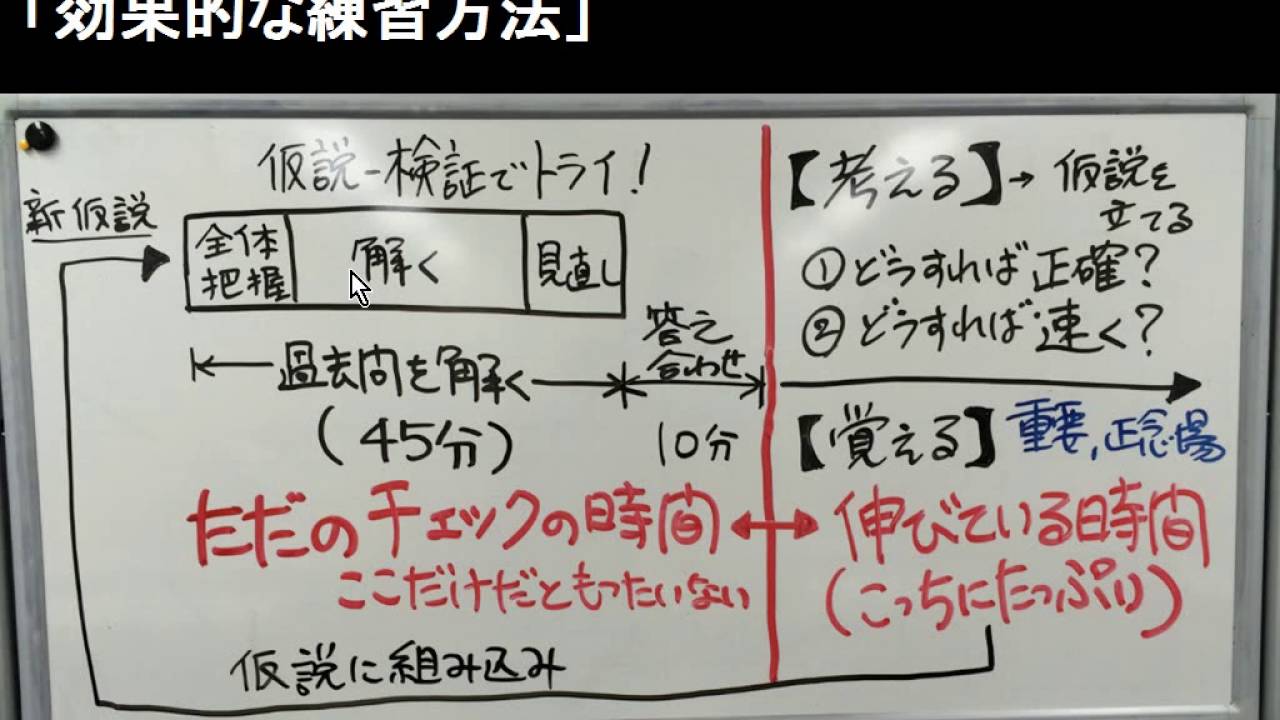 「効果的な練習方法」
仮説-検証でトライ!
新仮説
全体
把握
解く
見直し
過去問を解く
(45分)
答え
合わせ
10分
ただのチェックの時間
ここだけだともったいない
仮説に組み込み
【考える】→仮説を
立てる
①どうすれば正確?
②どうすれば速く?
【覚える】重要,正念場
伸びている時間
(こっちにたっぷり)